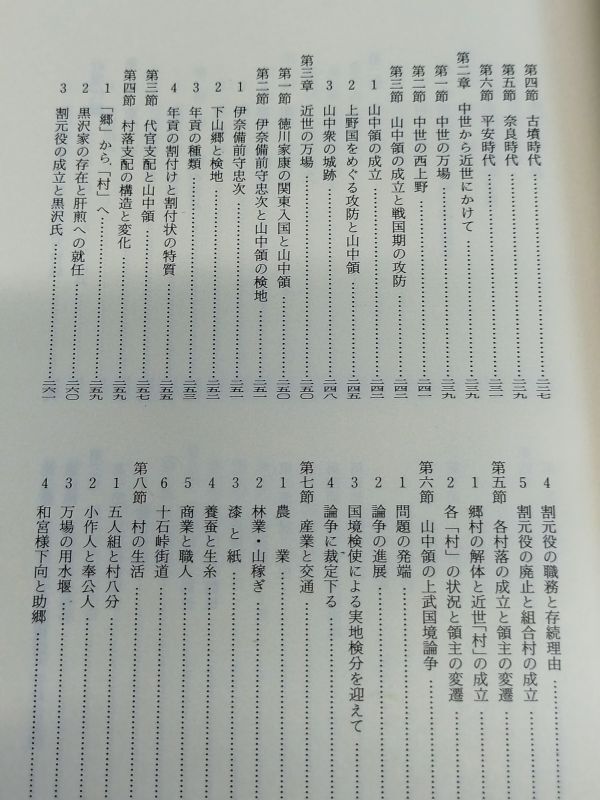 第四節　古墳時代……二二七
第五節　奈良時代……二二九
第六節　平安時代……二三一
第二章　中世から近世にかけて……二三九
第一節　中世の万場……二三九
第二節　中世の西上野……二四一
第三節　山中領の成立と戦国期の攻防……二四二
1　山中領の成立……二四二
2　上野国をめぐる攻防と山中領……二四五
3　山中衆の城跡……二四八
第三章　近世の万場……二五〇
第一節　徳川家康の関東入国と山中領……二五〇
第二節　伊奈備前守忠次と山中領の検地……二五一
1　伊奈備前守忠次……二五一
2　下山郷と検地……二五二
3　年貢の種類……二五三
4　年貢の割付けと割付状の特質……二五五
第三節　代官支配と山中領……二五七
第四節　村落支配の構造と変化……二五九
1　「郷」から、「村」へ……二五九
2　黒沢家の存在と肝煎への就任……二六〇
3　割元役の成立と黒沢氏……二六一
4　割元役の職務と存続理由……
5　割元役の廃止と組合村の成立……
第五節　各村落の成立と領主の変遷……
1　郷村の解体と近世「村」の成立……
2　各「村」の状況と領主の変遷……
第六節　山中領の上武国境論争……
1　問題の発端……
2　論争の進展……
3　国境検使による実地検分を迎えて……
4　論争に裁定下る……
第七節　産業と交通……
1　農　業……
2　林業・山稼ぎ……
3　漆と紙……
4　養蚕と生糸……
5　商業と職人……
6　十石峠街道……
第八節　村の生活……
1　五人組と村八分……
2　小作人と奉公人……
3　万場の用水堰……
4　和宮様下向と助郷……